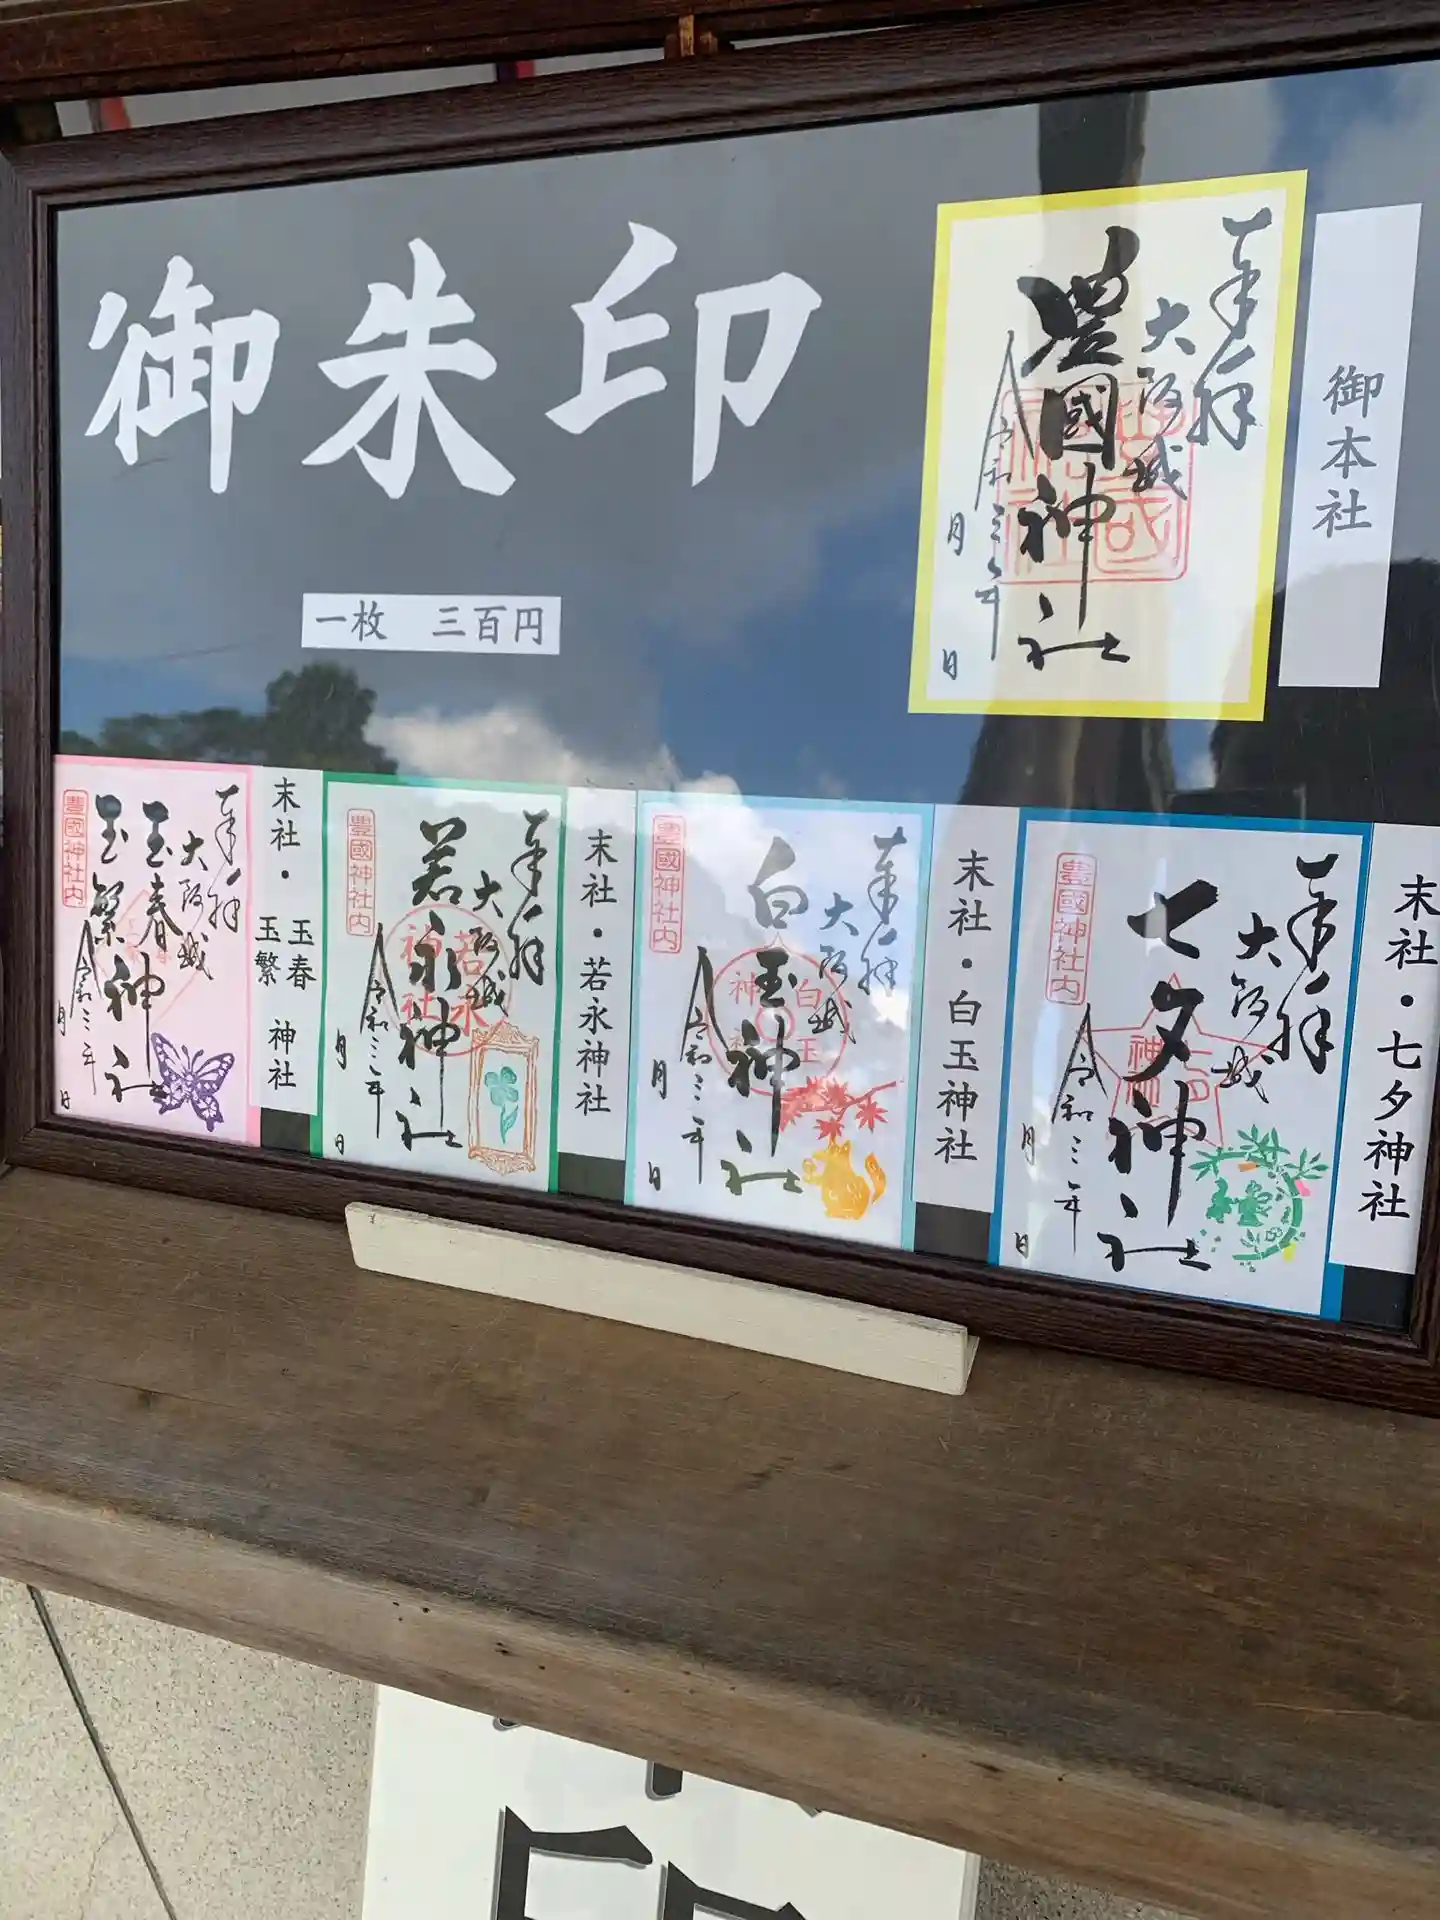 御朱印
一枚 三百円
御本社
奉拝
大阪城
豊國神社
令和三年
月 日
豊國神社
末社・七夕神社
奉拝
大阪城
七夕神社
令和三年
月 日
豊國神社内
末社・白玉神社
奉拝
大阪城
白玉神社
令和三年
月 日
豊國神社内
白玉神社
末社・若永神社
奉拝
大阪城
若永神社
令和三年
月 日
豊國神社内
若永神社
末社・玉春 玉繁 神社
奉拝
大阪城
玉春
玉繁
神社
令和三年
月 日
豊國神社内